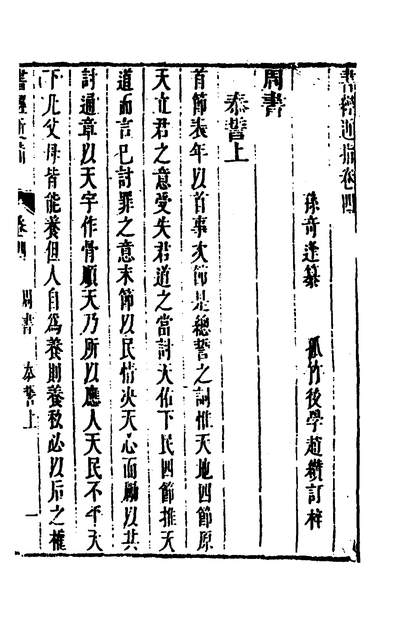 書經近指卷四
孫奇逢纂　孤竹後學趙纘訂梓
周書
泰誓上
首節表年以首事次節是總誓之詞惟天地四節原
天立君之意受失君道之當討天佑下民四節推天
道而言已討罪之意末節以民情決天心而勵以共
討通章以天字作骨順天乃所以應人天民不平天
下凡父母皆能養但人自為養則養教必以后之權
書經近指　卷四　周書　泰誓上　一